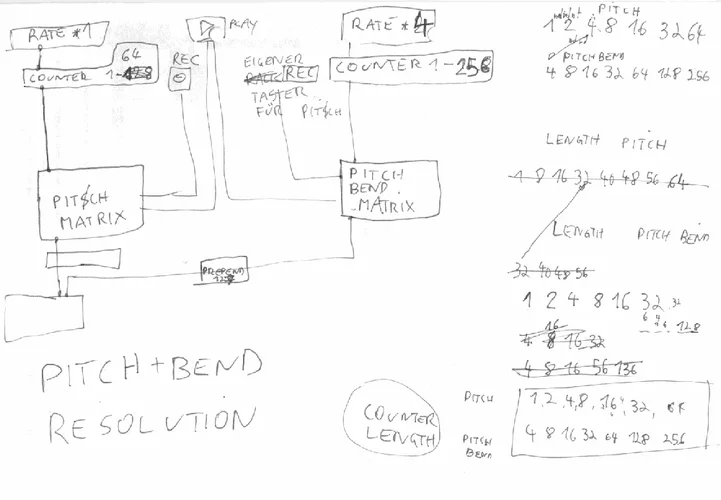 RATE *1
64
COUNTER 1-128
PLAY
REC
EIGENER
REC
TASTER
FÜR PITSCH
RATE *4
COUNTER 1-256
PITSCH
MATRIX
PITCH
BEND
MATRIX
PREPEND
PITCH + BEND
RESOLUTION
COUNTER
LENGTH
PITCH
1 2 4 8 16 32 64
PITCHBEND
4 8 16 32 64 128 256
LENGTH PITCH
1 8 16 32 40 48 56 64
LENGTH PITCH BEND
32 40 48 56
1 2 4 8 16 32 32
64 128
16
4 8 16 32
4 8 16 56 136
PITCH 1, 2, 4, 8, 16, 32, 64
PITCH BEND 4 8 16 32 64 128 256